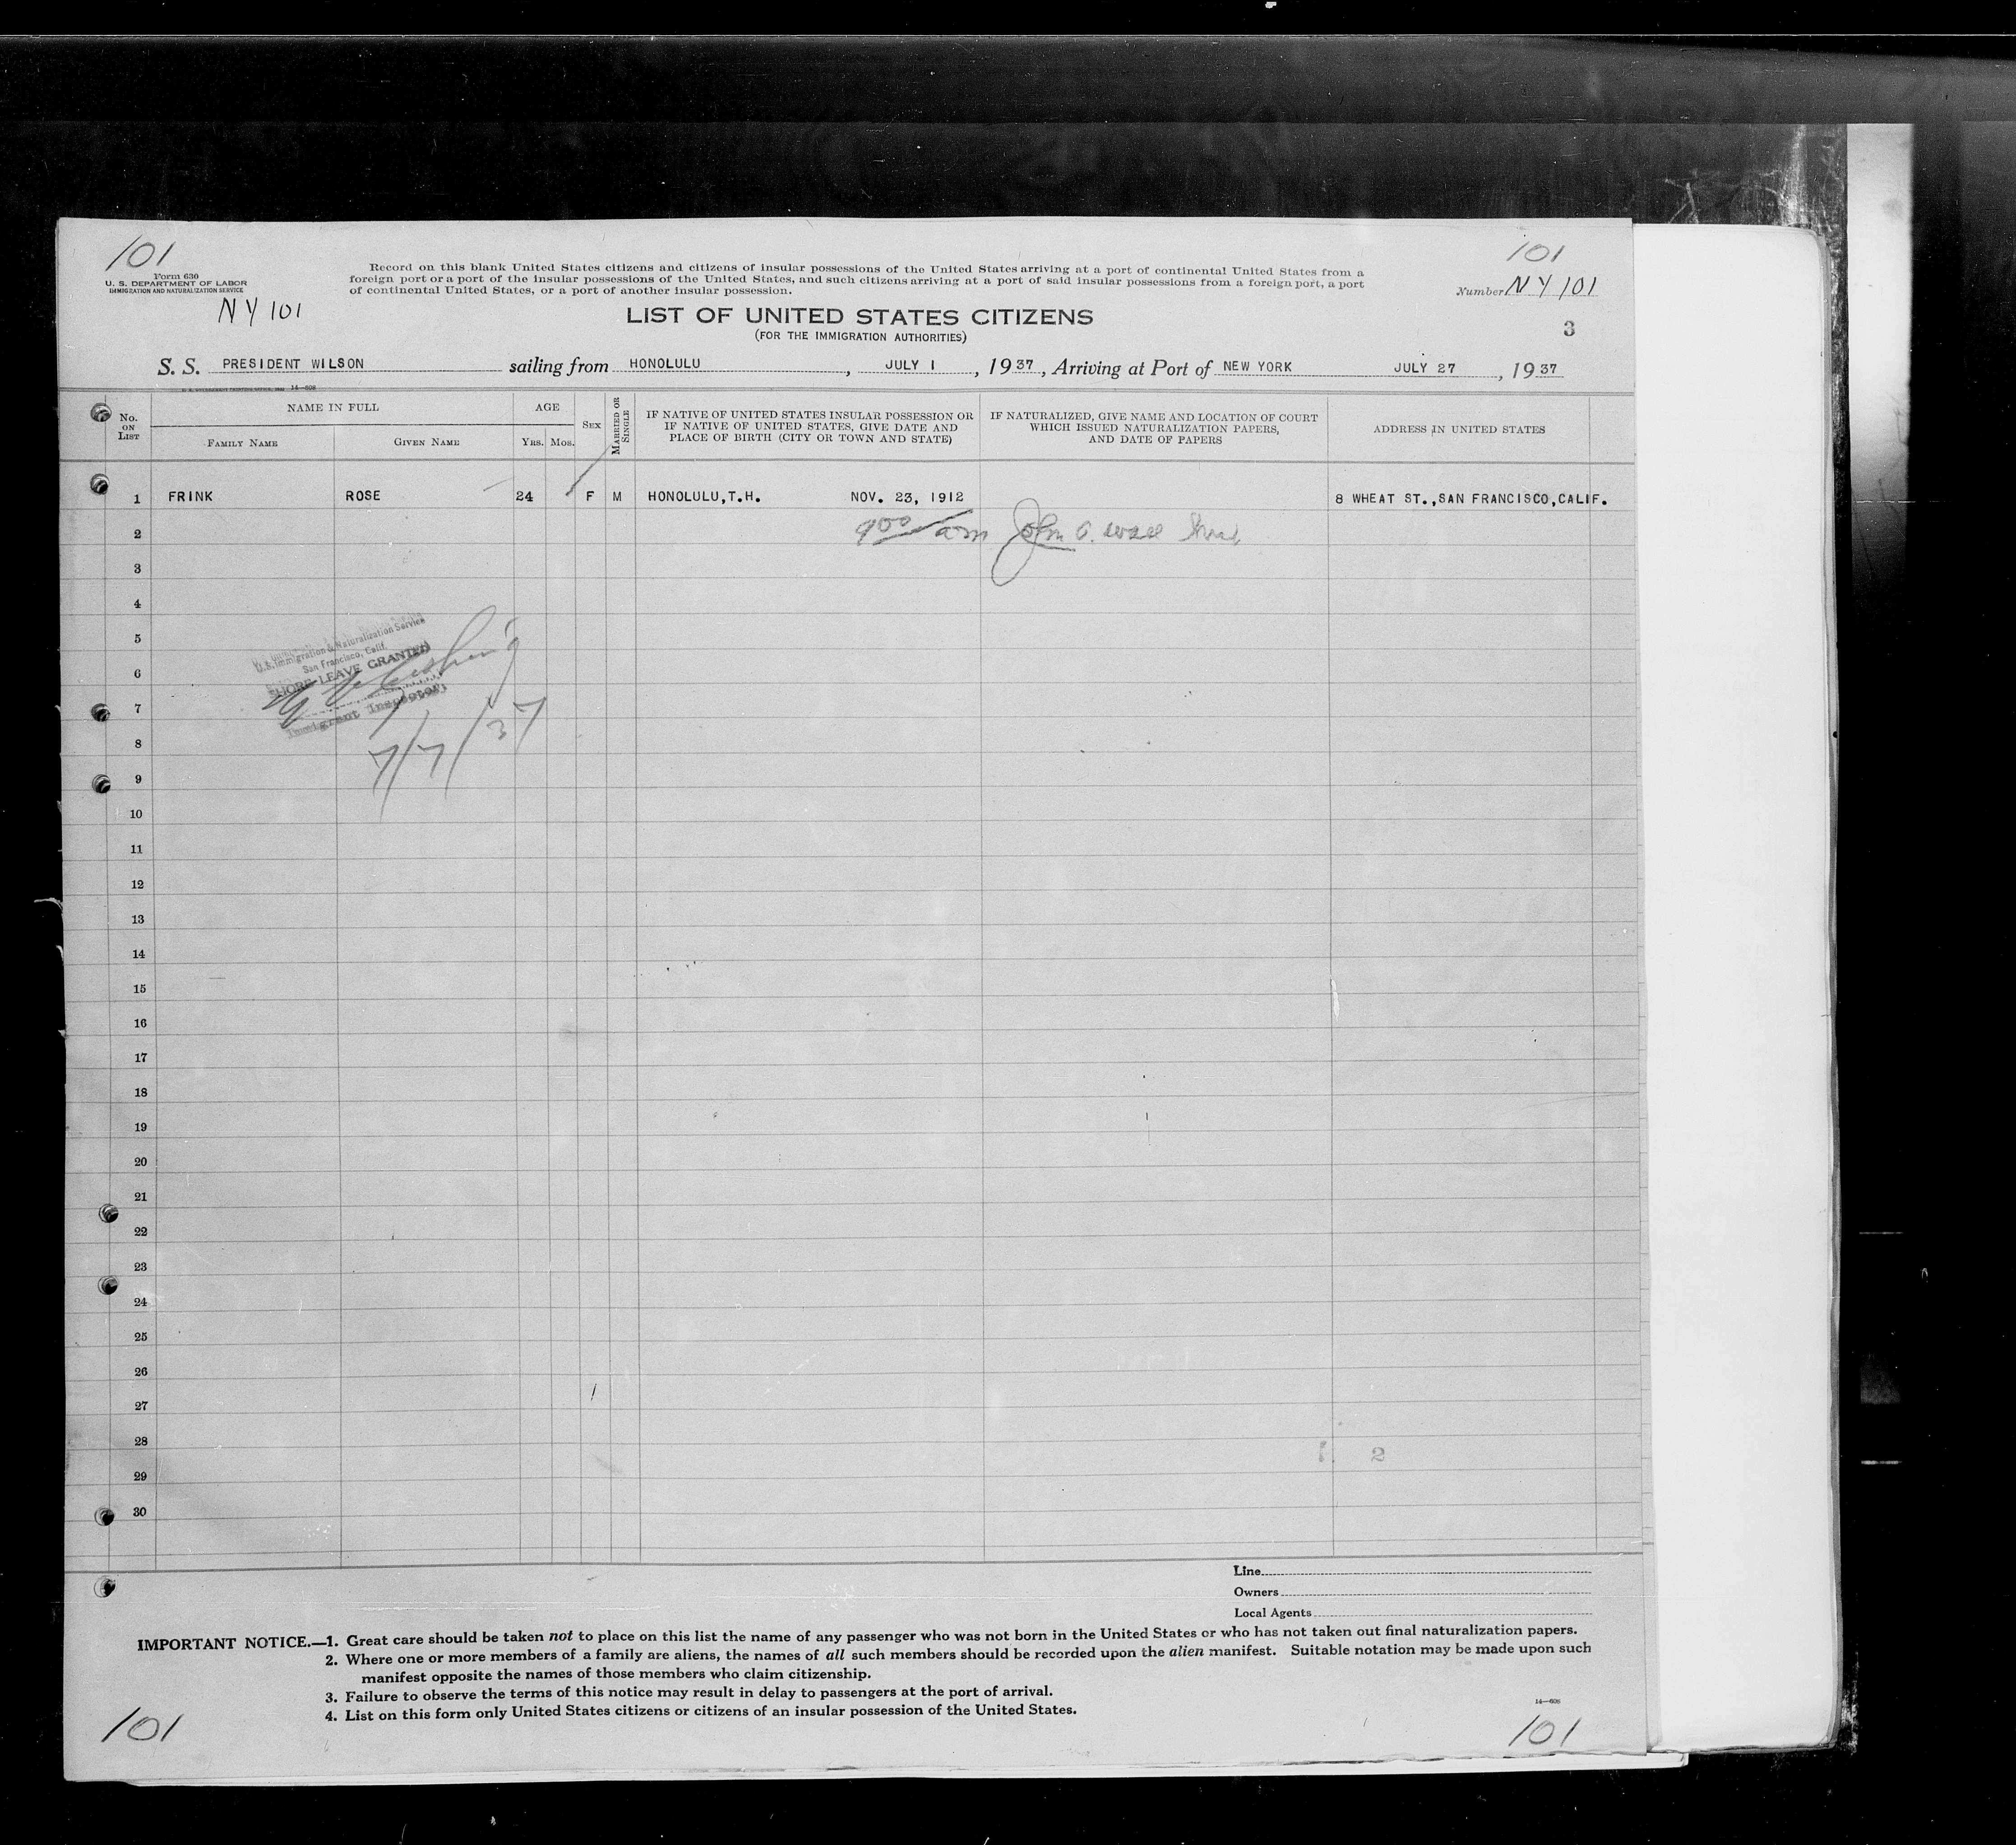 101
101
Form 630
U. S. DEPARTMENT OF LABOR
IMMIGRATION AND NATURALIZATION SERVICE
NY 101
Record on this blank United States citizens and citizens of insular possessions of the United States arriving at a port of continental United States from a
foreign port or a port of the insular possessions of the United States, and such citizens arriving at a port of said insular possessions from a foreign port, a port
of continental United States, or a port of another insular possession.
Number NY 101
LIST OF UNITED STATES CITIZENS
(FOR THE IMMIGRATION AUTHORITIES)
3
S. S. PRESIDENT WILSON sailing from HONOLULU, JULY 1, 1937, Arriving at Port of NEW YORK JULY 27, 1937
14—608
No. ON LIST
NAME IN FULL
FAMILY NAME
GIVEN NAME
AGE
Yrs. Mos.
SEX
MARRIED OR SINGLE
IF NATIVE OF UNITED STATES INSULAR POSSESSION OR
IF NATIVE OF UNITED STATES, GIVE DATE AND
PLACE OF BIRTH (CITY OR TOWN AND STATE)
IF NATURALIZED, GIVE NAME AND LOCATION OF COURT
WHICH ISSUED NATURALIZATION PAPERS,
AND DATE OF PAPERS
ADDRESS IN UNITED STATES
1 FRINK ROSE 24 F M HONOLULU,T.H. NOV. 23, 1912 8 WHEAT ST.,SAN FRANCISCO,CALIF.
2 900 am John
3
4
5
U.S. Immigration & Naturalization Service
San Francisco, Calif.
SHORE LEAVE GRANTED
6
Immigrant Inspector
7
7/7/37
8
9
10
11
12
13
14
15
16
17
18
19
20
21
22
23
24
25
26
27
28
2
29
30
Line
Owners
Local Agents
IMPORTANT NOTICE.—1. Great care should be taken not to place on this list the name of any passenger who was not born in the United States or who has not taken out final naturalization papers.
2. Where one or more members of a family are aliens, the names of all such members should be recorded upon the alien manifest. Suitable notation may be made upon such
manifest opposite the names of those members who claim citizenship.
3. Failure to observe the terms of this notice may result in delay to passengers at the port of arrival.
4. List on this form only United States citizens or citizens of an insular possession of the United States.
14—608
101
101